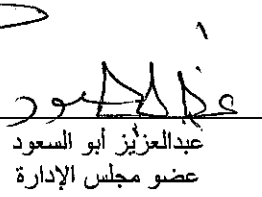 عبدالعزيز أبو السعود
عضو مجلس الإدارة